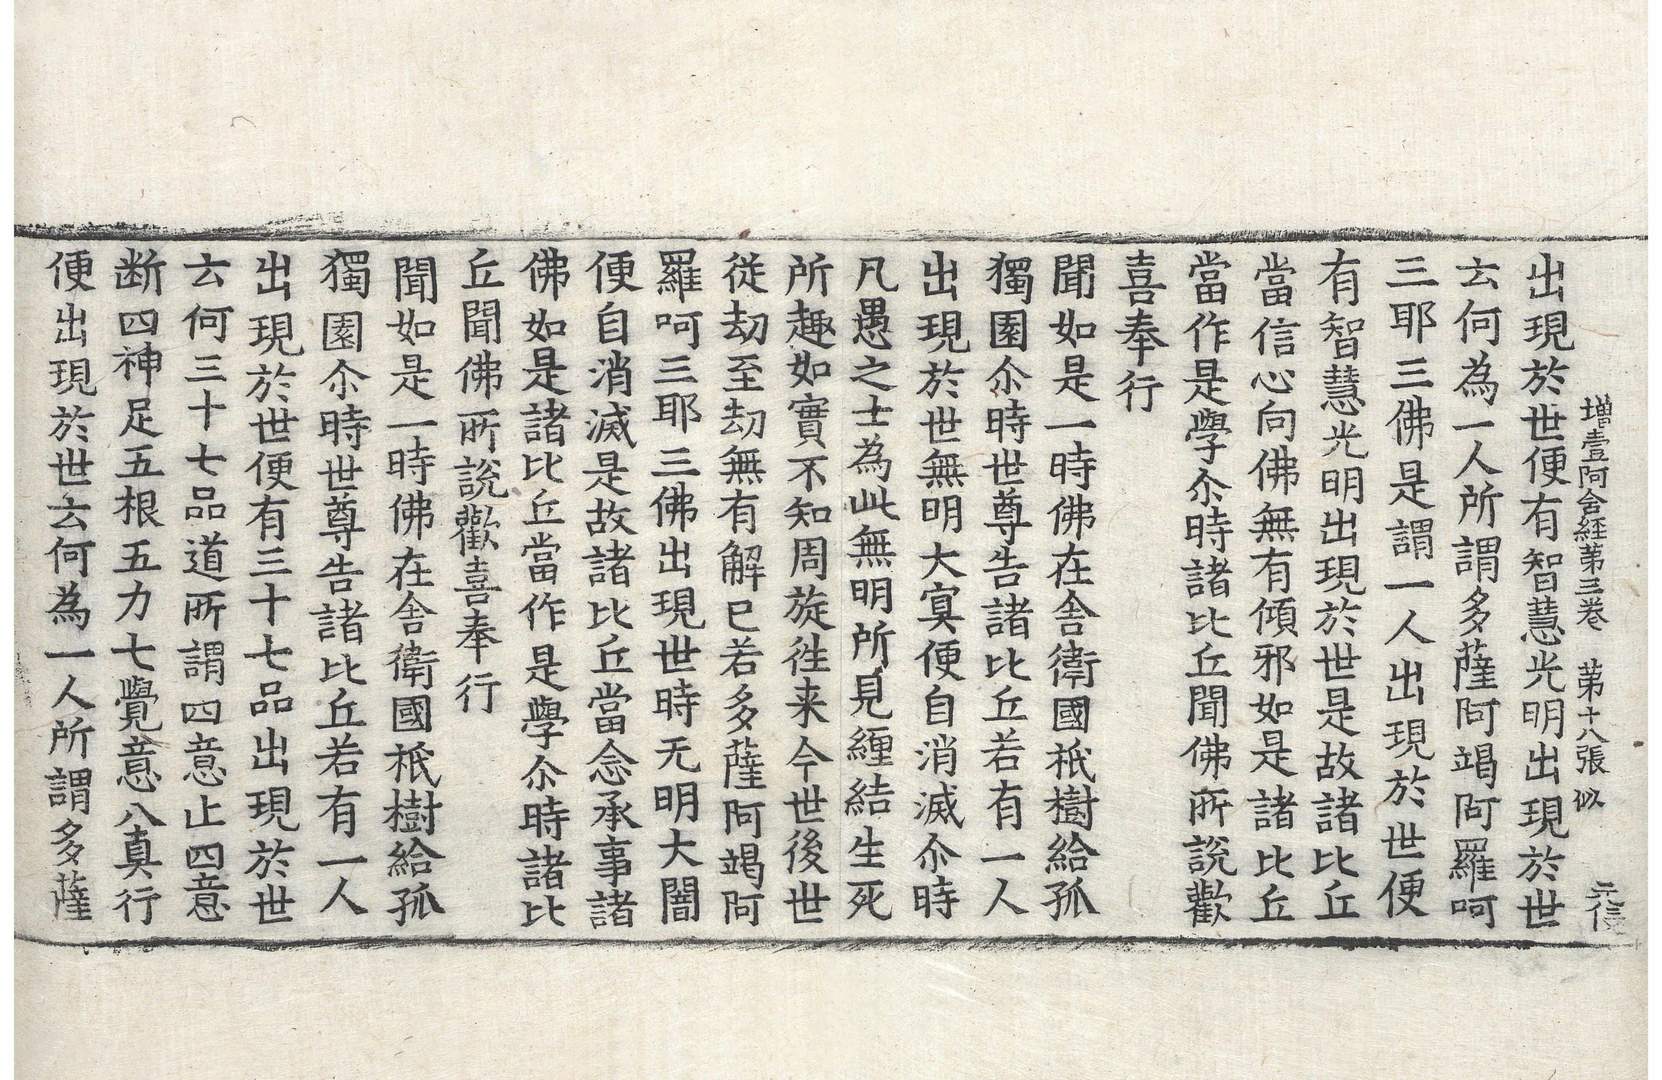 增壹阿含経苐三卷　苐十八張　似　元信
出現於世便有智慧光明出現於世
云何為一人所謂多薩阿竭阿羅呵
三耶三佛是謂一人出現於世便
有智慧光明出現於世是故諸比丘
當信心向佛無有傾邪如是諸比丘
當作是學尒時諸比丘聞佛所說歡
喜奉行
聞如是一時佛在舍衛國祇樹給孤
獨園尒時世尊告諸比丘若有一人
出現於世無明大冥便自消滅尒時
凡愚之士為此無明所見纏結生死
所趣如實不知周旋徃来今世後世
從劫至劫無有解已若多薩阿竭阿
羅呵三耶三佛出現世時无明大闇
便自消滅是故諸比丘當念承事諸
佛如是諸比丘當作是學尒時諸比
丘聞佛所說歡喜奉行
聞如是一時佛在舍衛國祇樹給孤
獨園尒時世尊告諸比丘若有一人
出現於世便有三十七品出現於世
云何三十七品道所謂四意止四意
断四神足五根五力七覺意八真行
便出現於世云何為一人所謂多薩